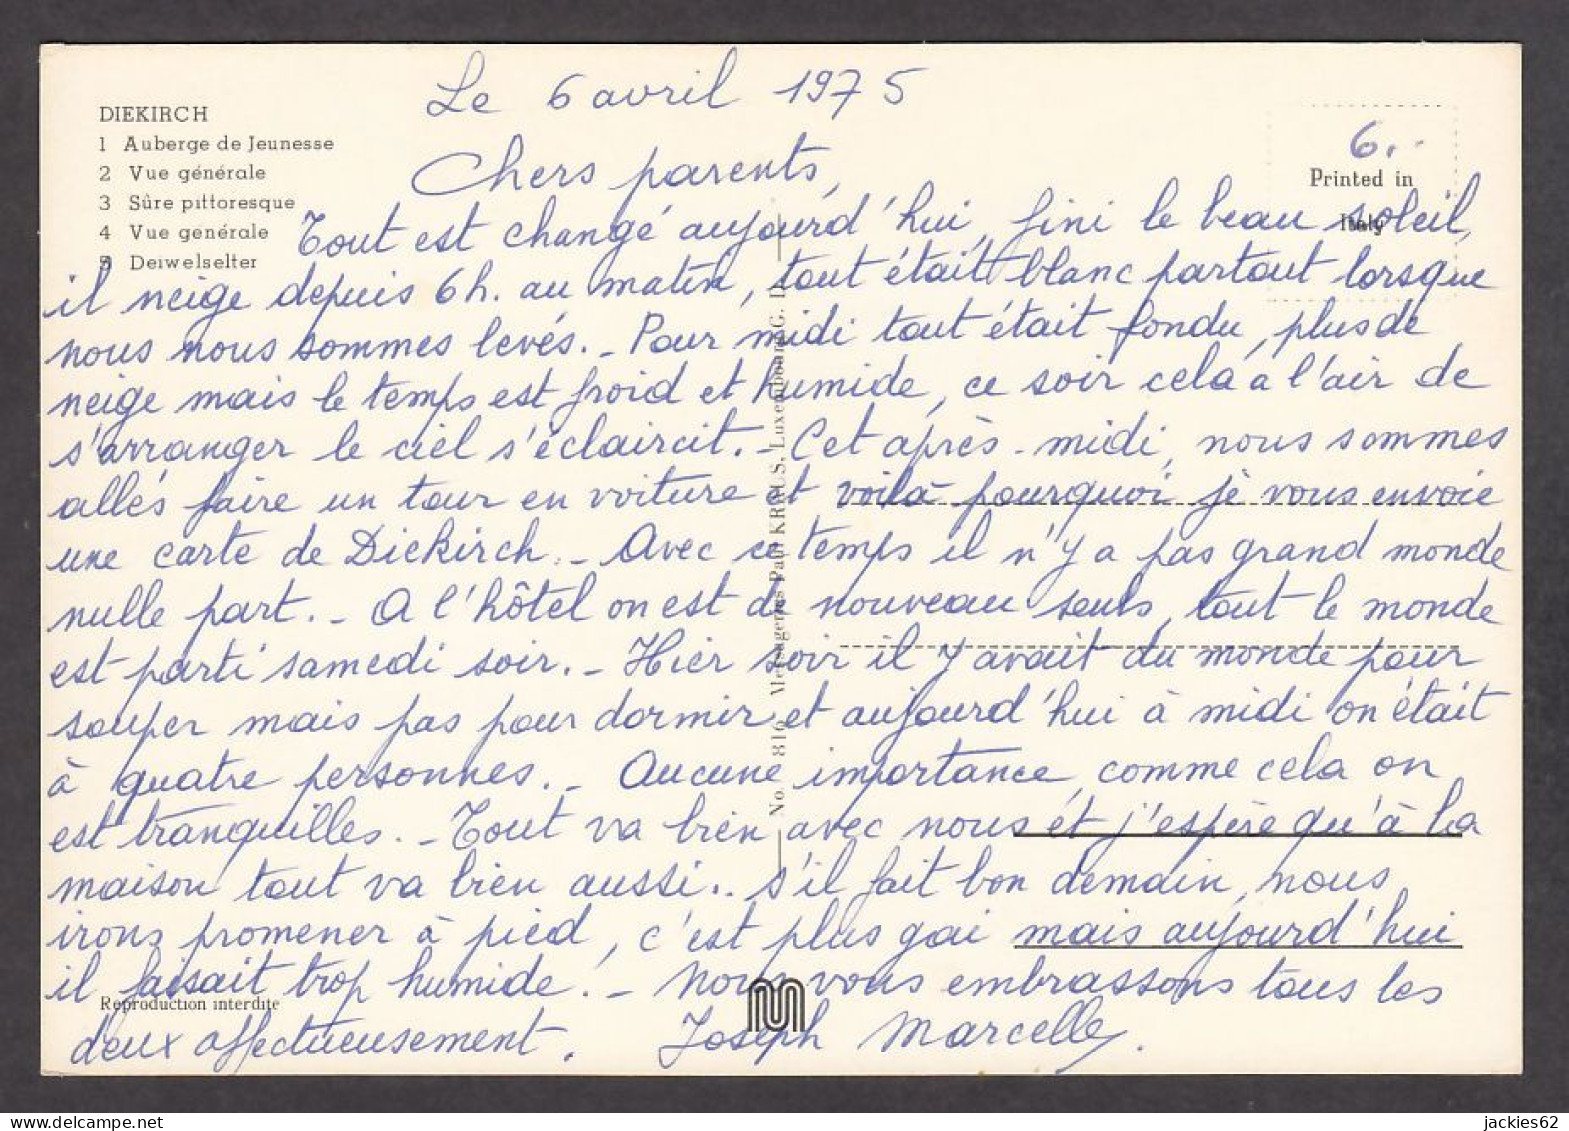 Le 6 avril 1975
DIEKIRCH
1 Auberge de Jeunesse
2 Vue générale
3 Sûre pittoresque
4 Vue genérale
5 Deiwelselter
6.-
Printed in
Italy
Chers parents,
Tout est changé aujourd'hui, fini le beau soleil,
il neige depuis 6 h. au matin, tout était blanc partout lorsque
nous nous sommes levés. - Pour midi tout était fondu, plus de
neige mais le temps est froid et humide, ce soir cela a l'air de
s'arranger le ciel s'éclaircit. - Cet après-midi, nous sommes
allés faire un tour en voiture et voilà pourquoi je vous envoie
une carte de Diekirch. - Avec ce temps il n'y a pas grand monde
nulle part. - A l'hôtel on est de nouveau seuls, tout le monde
est parti samedi soir. - Hier soir il y avait du monde pour
souper mais pas pour dormir et aujourd'hui à midi on était
à quatre personnes. - Aucune importance, comme cela on
est tranquilles. - Tout va bien avec nous et j'espère qu'à la
maison tout va bien aussi.. S'il fait bon demain, nous
irons promener à pied, c'est plus gai mais aujourd'hui
il faisait trop humide. - Nous vous embrassons tous les
deux affectueusement. Joseph Marcelle.
No. 810 Messageries Paul KRAUS, Luxembourg G. D.
Reproduction interdite
jackies62